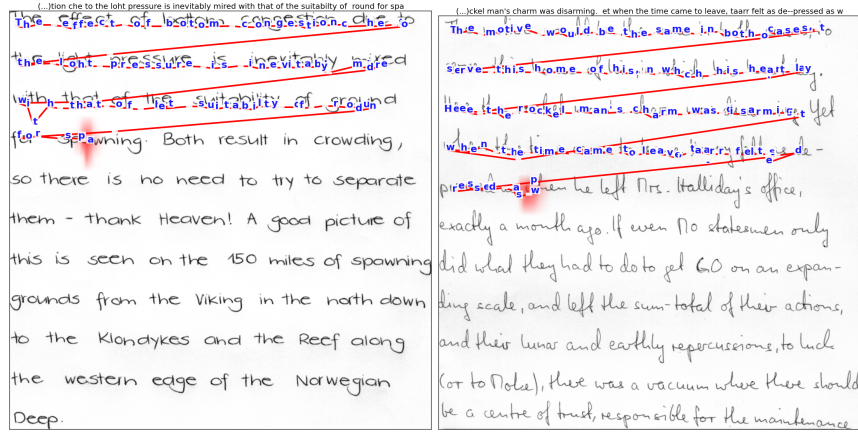 (...)tion che to the loht pressure is inevitably mired with that of the suitabilty of round for spa
The effect of bottom congestion due to
the light pressure is inevitably mixed
with that of the suitability of ground
for spawning. Both result in crowding,
so there is no need to try to separate
them - thank Heaven! A good picture of
this is seen on the 150 miles of spawning
grounds from the Viking in the north down
to the Klondykes and the Reef along
the western edge of the Norwegian
Deep.
(...)ckel man's charm was disarming. et when the time came to leave, taarr felt as de--pressed as w
The motive would be the same in both cases, to
serve this home of his, in which his heart lay.
the man's charm was disarming. Yet
when the time came to leave, felt as de-
pressed as when he left Mrs. Halliday's office,
exactly a month ago. If even no statesmen only
did what they had to do to get GO on an expan-
ding scale, and left the sum-total of their actions,
and their lunar and earthly repercussions, to luck
(or to Moke), there was a vacuum where there should
be a centre of trust, responsible for the maintenance